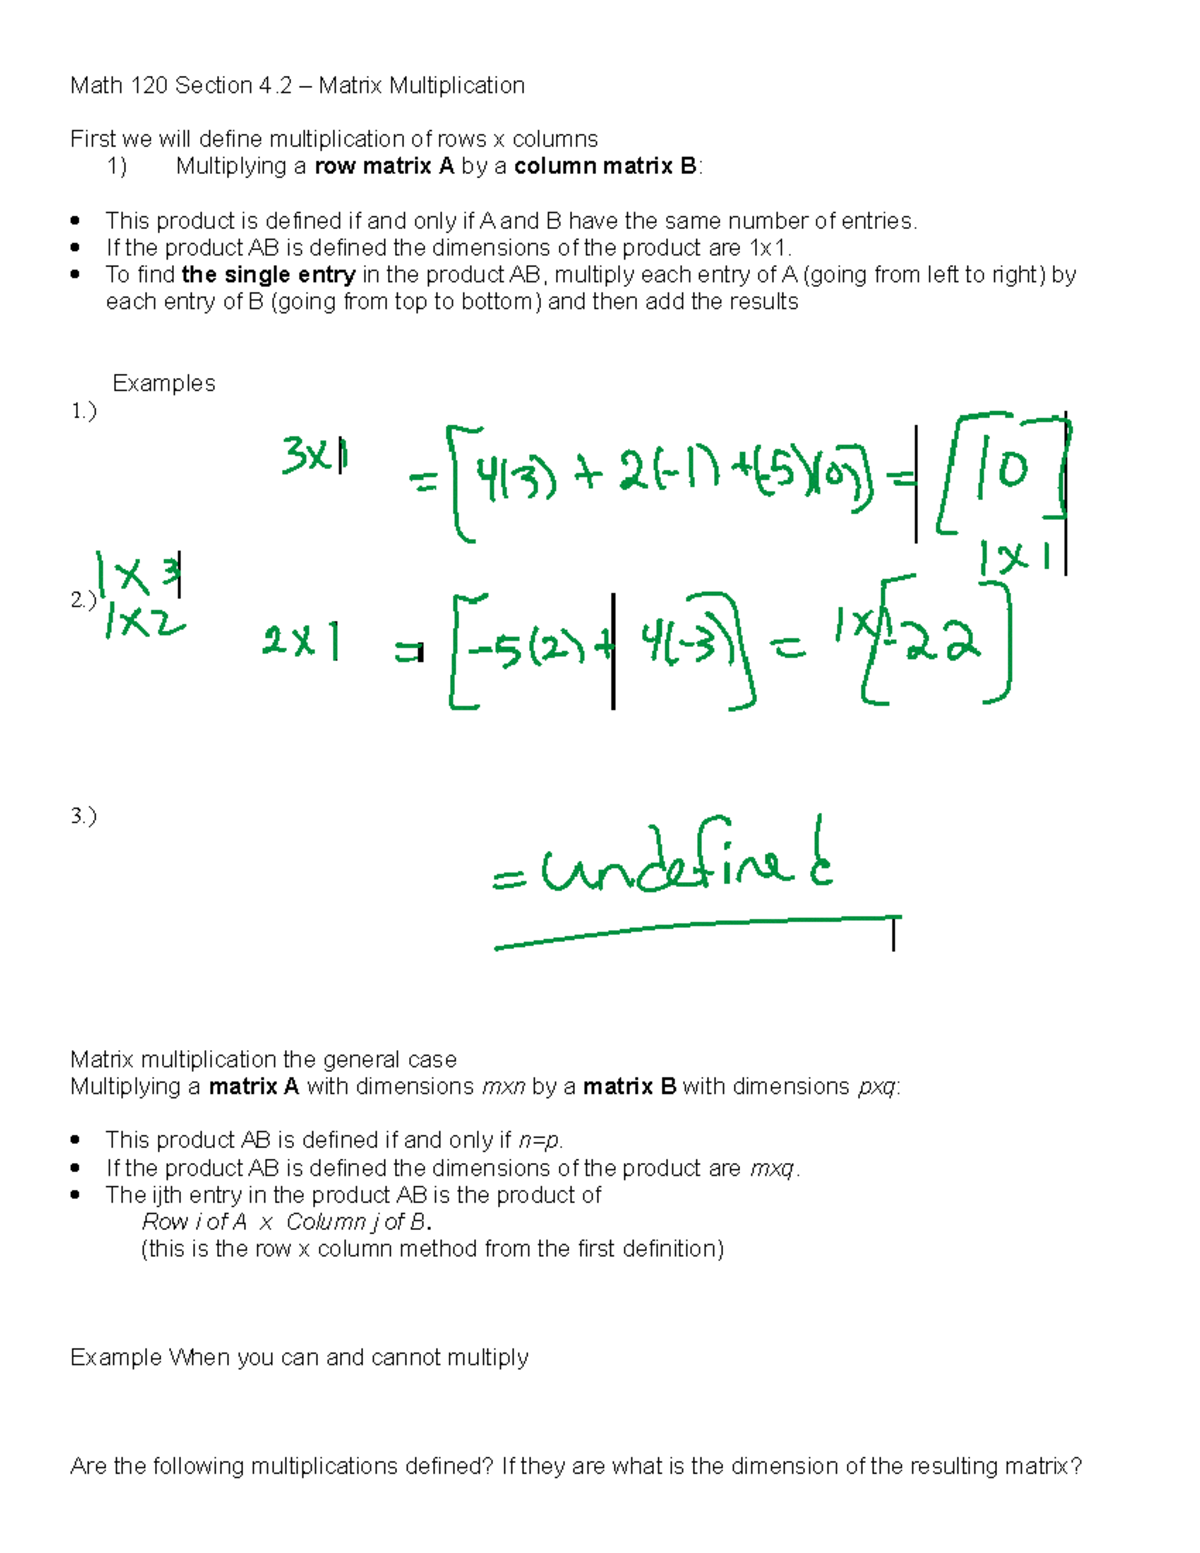 Math 120 Section 4.2 – Matrix Multiplication
First we will define multiplication of rows x columns
1) Multiplying a row matrix A by a column matrix B:
• This product is defined if and only if A and B have the same number of entries.
• If the product AB is defined the dimensions of the product are 1x1.
• To find the single entry in the product AB, multiply each entry of A (going from left to right) by
each entry of B (going from top to bottom) and then add the results
Examples
1.)
3x1 = [4(3) + 2(-1) + (-5)(0)] = [10]
1x3
1x1
2.)
1x2
2x1 = [-5(2) + 4(-3)] = [-22]
1x1
3.)
= undefined
Matrix multiplication the general case
Multiplying a matrix A with dimensions mxn by a matrix B with dimensions pxq:
• This product AB is defined if and only if n=p.
• If the product AB is defined the dimensions of the product are mxq.
• The ijth entry in the product AB is the product of
Row i of A x Column j of B.
(this is the row x column method from the first definition)
Example When you can and cannot multiply
Are the following multiplications defined? If they are what is the dimension of the resulting matrix?